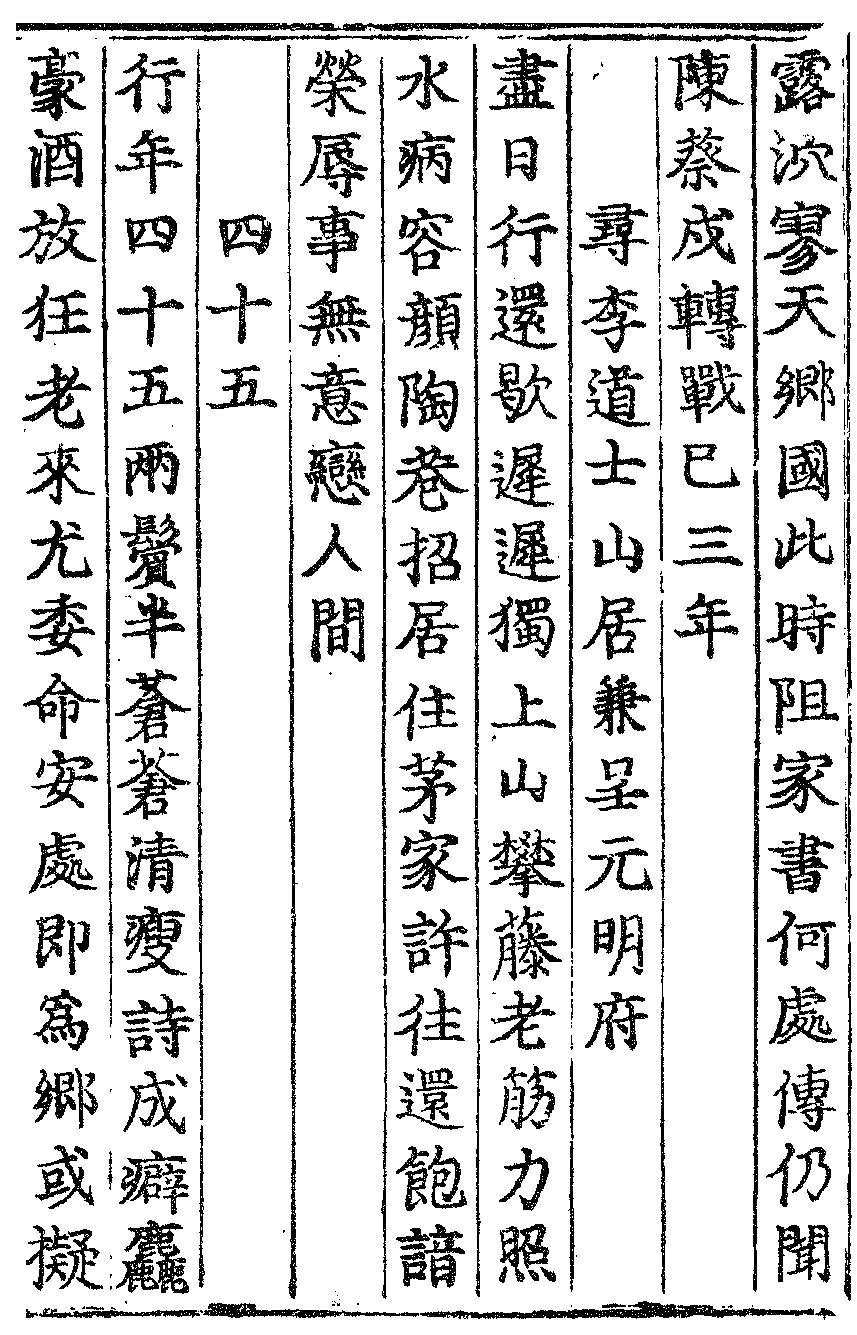 露泬寥天鄉國此時阻家書何處傳仍聞
陳蔡戍轉戰已三年
尋李道士山居兼呈元明府
盡日行還歇遲遲獨上山攀藤老筋力照
水病容顏陶巷招居住茅家許往還飽諳
榮辱事無意戀人間
四十五
行年四十五兩鬢半蒼蒼清瘦詩成癖麤
豪酒放狂老來尤委命安處即爲鄉或擬